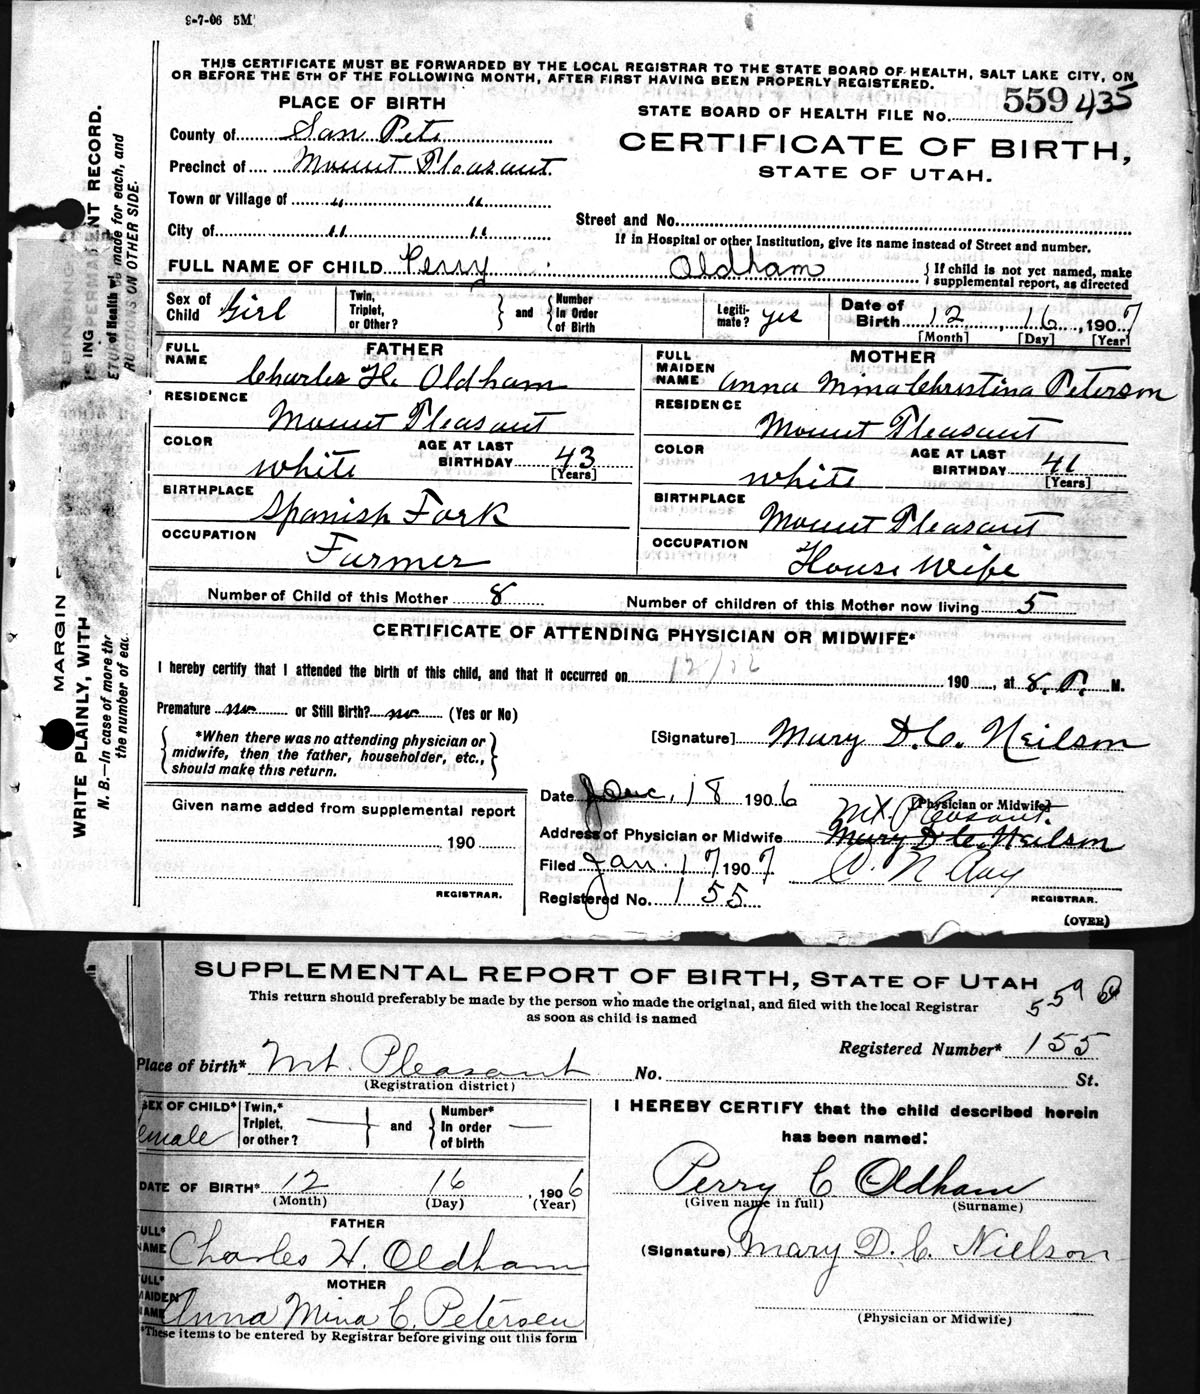 9-7-06 5M
THIS CERTIFICATE MUST BE FORWARDED BY THE LOCAL REGISTRAR TO THE STATE BOARD OF HEALTH, SALT LAKE CITY, ON
OR BEFORE THE 5TH OF THE FOLLOWING MONTH, AFTER FIRST HAVING BEEN PROPERLY REGISTERED.
PLACE OF BIRTH
STATE BOARD OF HEALTH FILE No. 559 435
County of San Pete
CERTIFICATE OF BIRTH,
Precinct of Mount Pleasant
STATE OF UTAH.
Town or Village of " "
City of " "
Street and No.
If in Hospital or other Institution, give its name instead of Street and number.
FULL NAME OF CHILD Perry Oldham
{If child is not yet named, make
supplemental report, as directed
Sex of Child Girl
Twin, Triplet, or Other?
and
Number In Order of Birth
Legiti-mate? yes
Date of Birth 12, 16, 1907
[Month] [Day] [Year]
FATHER
FULL NAME Charles H. Oldham
RESIDENCE
Mount Pleasant
COLOR white
AGE AT LAST BIRTHDAY 43
[Years]
BIRTHPLACE
Spanish Fork
OCCUPATION
Farmer
MOTHER
FULL MAIDEN NAME Anna Mina Christina Peterson
RESIDENCE
Mount Pleasant
COLOR white
AGE AT LAST BIRTHDAY 41
[Years]
BIRTHPLACE
Mount Pleasant
OCCUPATION
House Wife
Number of Child of this Mother 8
Number of children of this Mother now living 5
CERTIFICATE OF ATTENDING PHYSICIAN OR MIDWIFE*
I hereby certify that I attended the birth of this child, and that it occurred on 190 , at 8. P. M.
Premature no or Still Birth? no (Yes or No)
*When there was no attending physician or
midwife, then the father, householder, etc.,
should make this return.
[Signature] Mary D. C. Neilson
[Physician or Midwife]
Given name added from supplemental report
190
REGISTRAR.
Date Dec. 18 1906
Mt. Pleasant.
Address of Physician or Midwife Mary D C. Neilson
Filed Jan. 17 1907
Registered No. 155
REGISTRAR.
(OVER)
MARGIN
WRITE PLAINLY, WITH
N. B.—In case of more th
the number of ea
SUPPLEMENTAL REPORT OF BIRTH, STATE OF UTAH
This return should preferably be made by the person who made the original, and filed with the local Registrar
as soon as child is named
559
Registered Number* 155
Place of birth* Mt. Pleasant No. St.
(Registration district)
SEX OF CHILD*
emale
Twin,* Triplet, or other?
and
Number* In order of birth
DATE OF BIRTH* 12 16, 1906
(Month) (Day) (Year)
FATHER
FULL* NAME Charles H. Oldham
MOTHER
FULL* MAIDEN NAME Anna Mina C. Petersen
*These items to be entered by Registrar before giving out this form
I HEREBY CERTIFY that the child described herein
has been named:
Perry C Oldham
(Given name in full) (Surname)
(Signature) Mary D. C. Nielson
(Physician or Midwife)